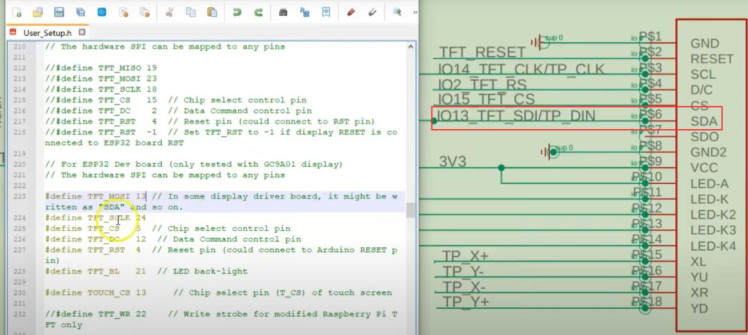 User_Setup.h
210 // The hardware SPI can be mapped to any pins
211
212 //#define TFT_MISO 19
213 //#define TFT_MOSI 23
214 //#define TFT_SCLK 18
215 //#define TFT_CS 15 // Chip select control pin
216 //#define TFT_DC 2 // Data Command control pin
217 //#define TFT_RST 4 // Reset pin (could connect to RST pin)
218 //#define TFT_RST -1 // Set TFT_RST to -1 if display RESET is co
nnected to ESP32 board RST
219
220 // For ESP32 Dev board (only tested with GC9A01 display)
221 // The hardware SPI can be mapped to any pins
222
223 #define TFT_MOSI 13 // In some display driver board, it might be w
ritten as "SDA" and so on.
224 #define TFT_SCLK 24
225 #define TFT_CS 5 // Chip select control pin
226 #define TFT_DC 12 // Data Command control pin
227 #define TFT_RST 4 // Reset pin (could connect to Arduino RESET p
in)
228 #define TFT_BL 21 // LED back-light
229
230 #define TOUCH_CS 13 // Chip select pin (T_CS) of touch screen
231
232 //#define TFT_WR 22 // Write strobe for modified Raspberry Pi T
FT only
sup 0 P$1 GND
TFT_RESET P$2 RESET
IO14_TFT_CLK/TP_CLK P$3 SCL
IO2_TFT_RS P$4 D/C
IO15_TFT_CS P$5 CS
IO13_TFT_SDI/TP_DIN P$6 SDA
P$7 SDO
sup 0 P$8 GND2
3V3 P$9 VCC
P$10 LED-A
P$11 LED-K
P$12 LED-K2
P$13 LED-K3
P$14 LED-K4
TP_X+ P$15 XL
TP_Y- P$16 YU
TP_X- P$17 XR
TP_Y+ P$18 YD